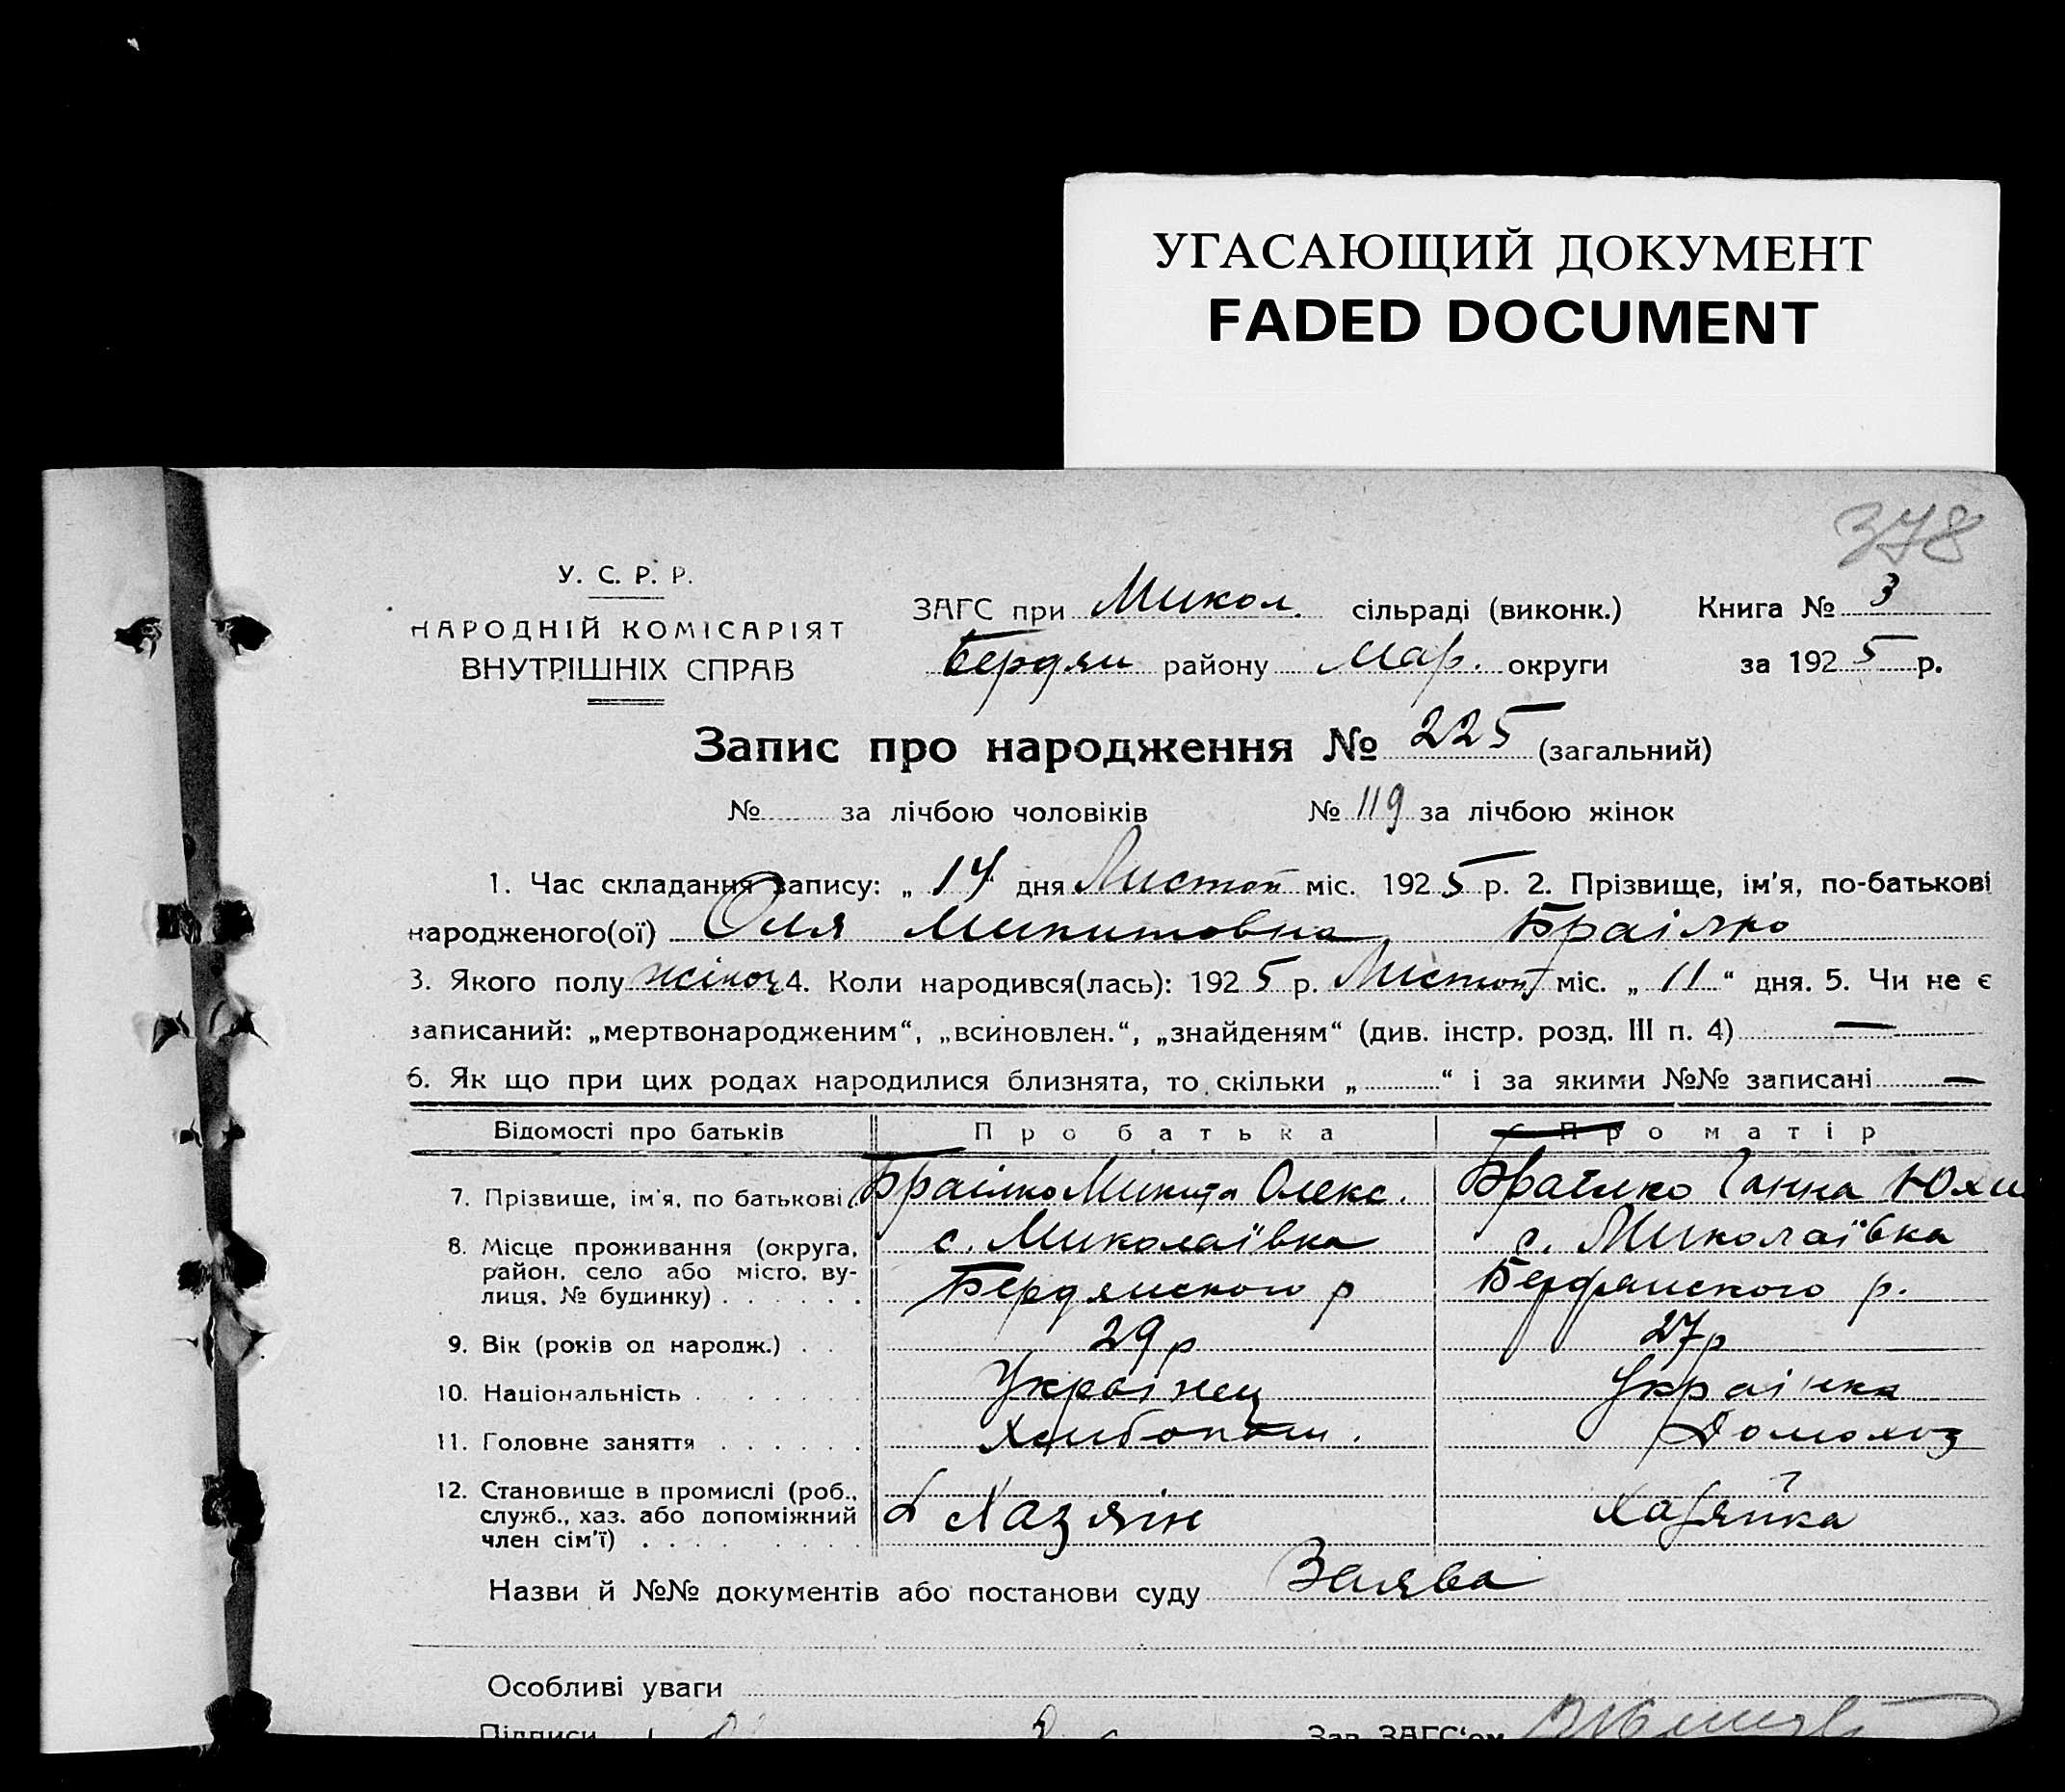 УГАСАЮЩИЙ ДОКУМЕНТ
FADED DOCUMENT
378
У. С. Р. Р.
НАРОДНІЙ КОМІСАРІЯТ
ВНУТРІШНІХ СПРАВ
ЗАГС при Микол. сільраді (виконк.) Книга № 3
Бердян району Мар. округи за 1925 р.
Запис про народження № 225 (загальний)
№ за лічбою чоловіків № 119 за лічбою жінок
1. Час складання запису: „14“ дня Листоп міс. 1925 р. 2. Прізвище, ім'я, по-батькові
народженого(ої) Оля Микитовна Браілко
3. Якого полу жіноч 4. Коли народився(лась): 1925 р. Листоп міс. „11“ дня. 5. Чи не є
записаний: „мертвонародженим“, „всиновлен.“, „знайденям“ (див. інстр. розд. III п. 4) —
6. Як що при цих родах народилися близнята, то скільки „ “ і за якими №№ записані —
Відомості про батьків Про батька Про матір
7. Прізвище, ім'я, по батькові Браілко Микита Олекс. Браїлко Ганна Юхи
8. Місце проживання (округа, район, село або місто, вулиця, № будинку) с. Миколаївка Бердянского р с. Миколаївка Бердянского р.
9. Вік (років од народж.) 29 р 27 р
10. Національність Украінец Украінка
11. Головне заняття Хлібопаш. Домохоз
12. Становище в промислі (роб., служб., хаз. або допоміжний член сім'ї) Хазяін Хазяйка
Назви й №№ документів або постанови суду Заява
Особливі уваги
Підписи Зав. ЗАГС'ом